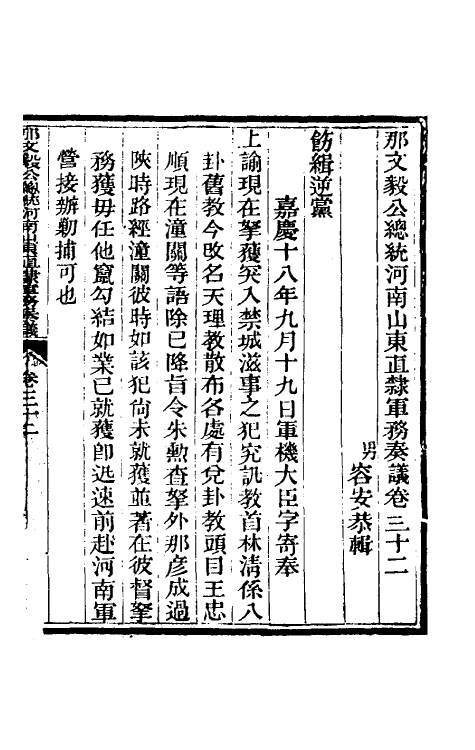 那文毅公總統河南山東直隸軍務奏議卷三十二
男 容安恭輯
飭緝逆黨
嘉慶十八年九月十九日軍機大臣字寄奉
上諭現在拏獲突入禁城滋事之犯究訊教首林清係八
卦舊教今改名天理教散布各處有兌卦教頭目王忠
順現在潼關等語除已降旨令朱勳查拏外那彥成過
陝時路經潼關彼時如該犯尙未就獲並著在彼督拏
務獲毋任他竄勾結如業已就獲卽迅速前赴河南軍
營接辦勦捕可也
那文毅公總統河南山東直隸軍務奏議 卷三十二